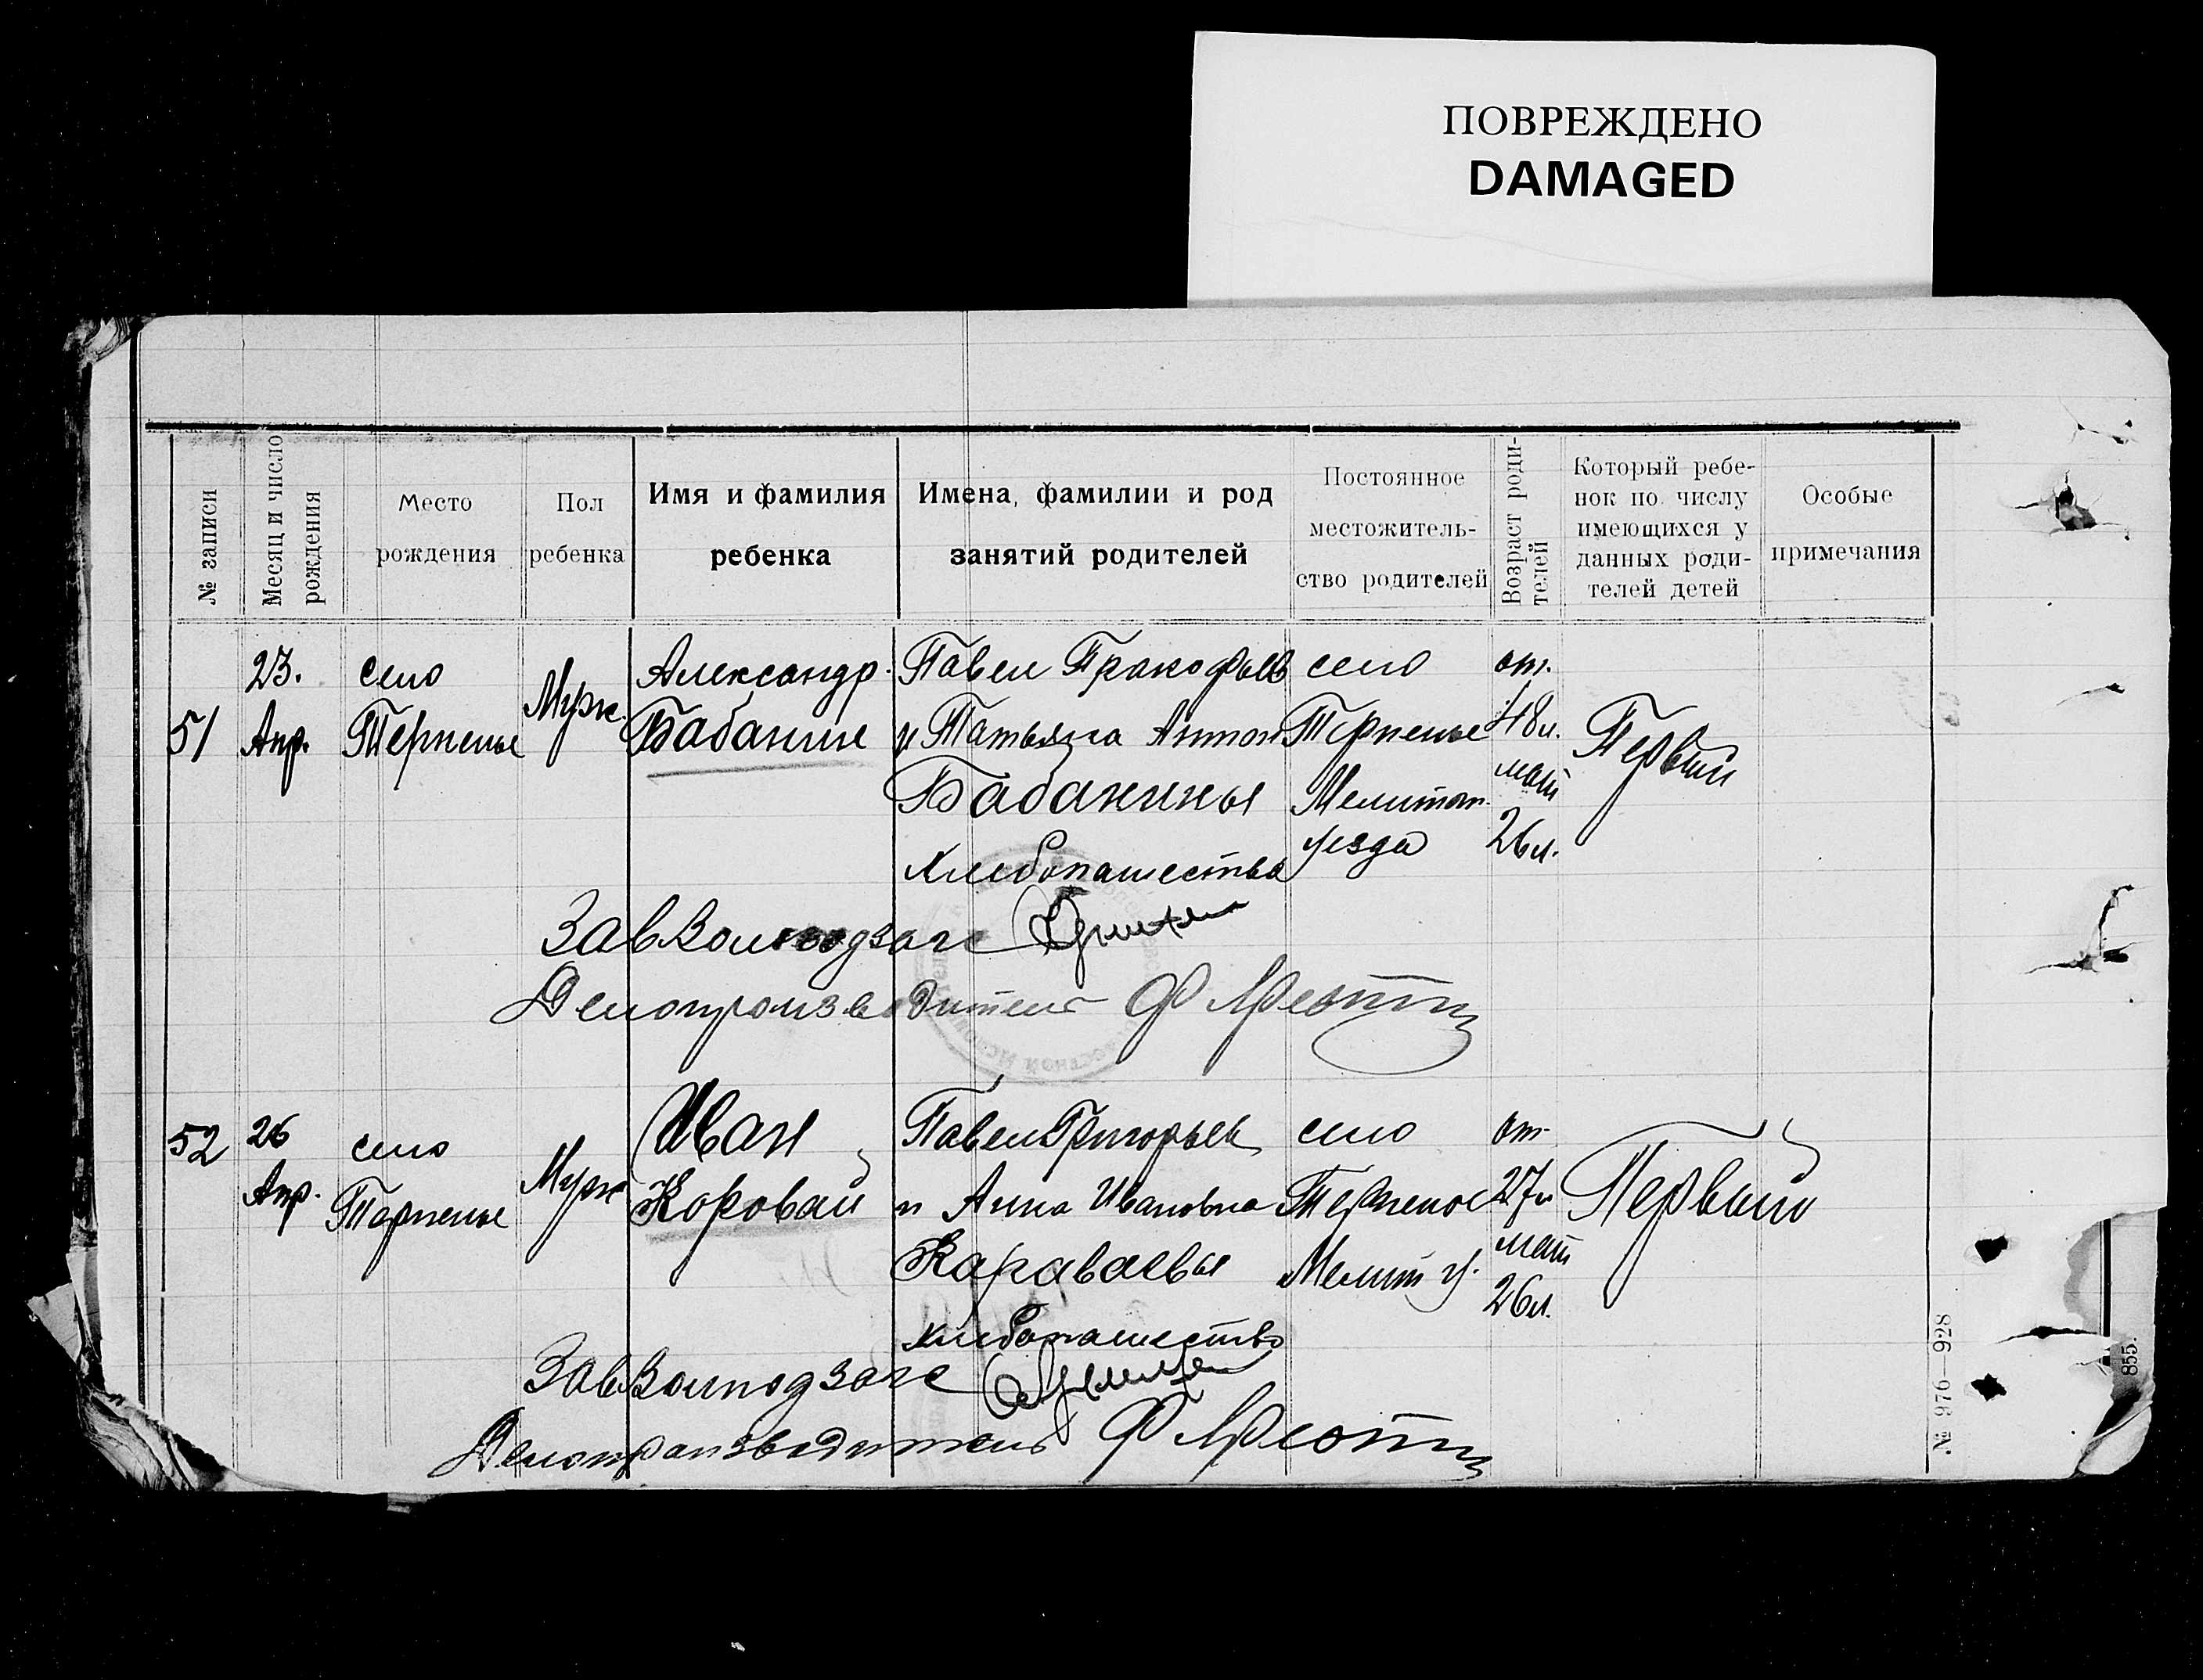 ПОВРЕЖДЕНО
DAMAGED
№ записи
Месяц и число рождения
Место рождения
Пол ребенка
Имя и фамилия ребенка
Имена, фамилии и род занятий родителей
Постоянное местожитель-
ство родителей
Возраст роди-
телей
Который ребе-
нок по числу
имеющихся у
данных роди-
телей детей
Особые примечания
51
23.
Апр.
село
Терпенье
Муж.
Александр
Бабанин
Павел Пракофьев
и Татьяна Антон
Бабанины
хлебопашество
село
Терпенье
Мелитоп.
уезда
от.
48 л.
мат
26 л.
Первый
Завволподзагс
Делопроизводитель
52
26
Апр.
село
Терпенье
Муж
Иван
Коровай
Павел Григорьев
и Анна Ивановна
Караваевы
хлебопашество
село
Терпенье
Мелит у.
от
27 л
мат
26 л.
Первый
Завволподзагс
Делопроизводитель
№ 976—928
855.